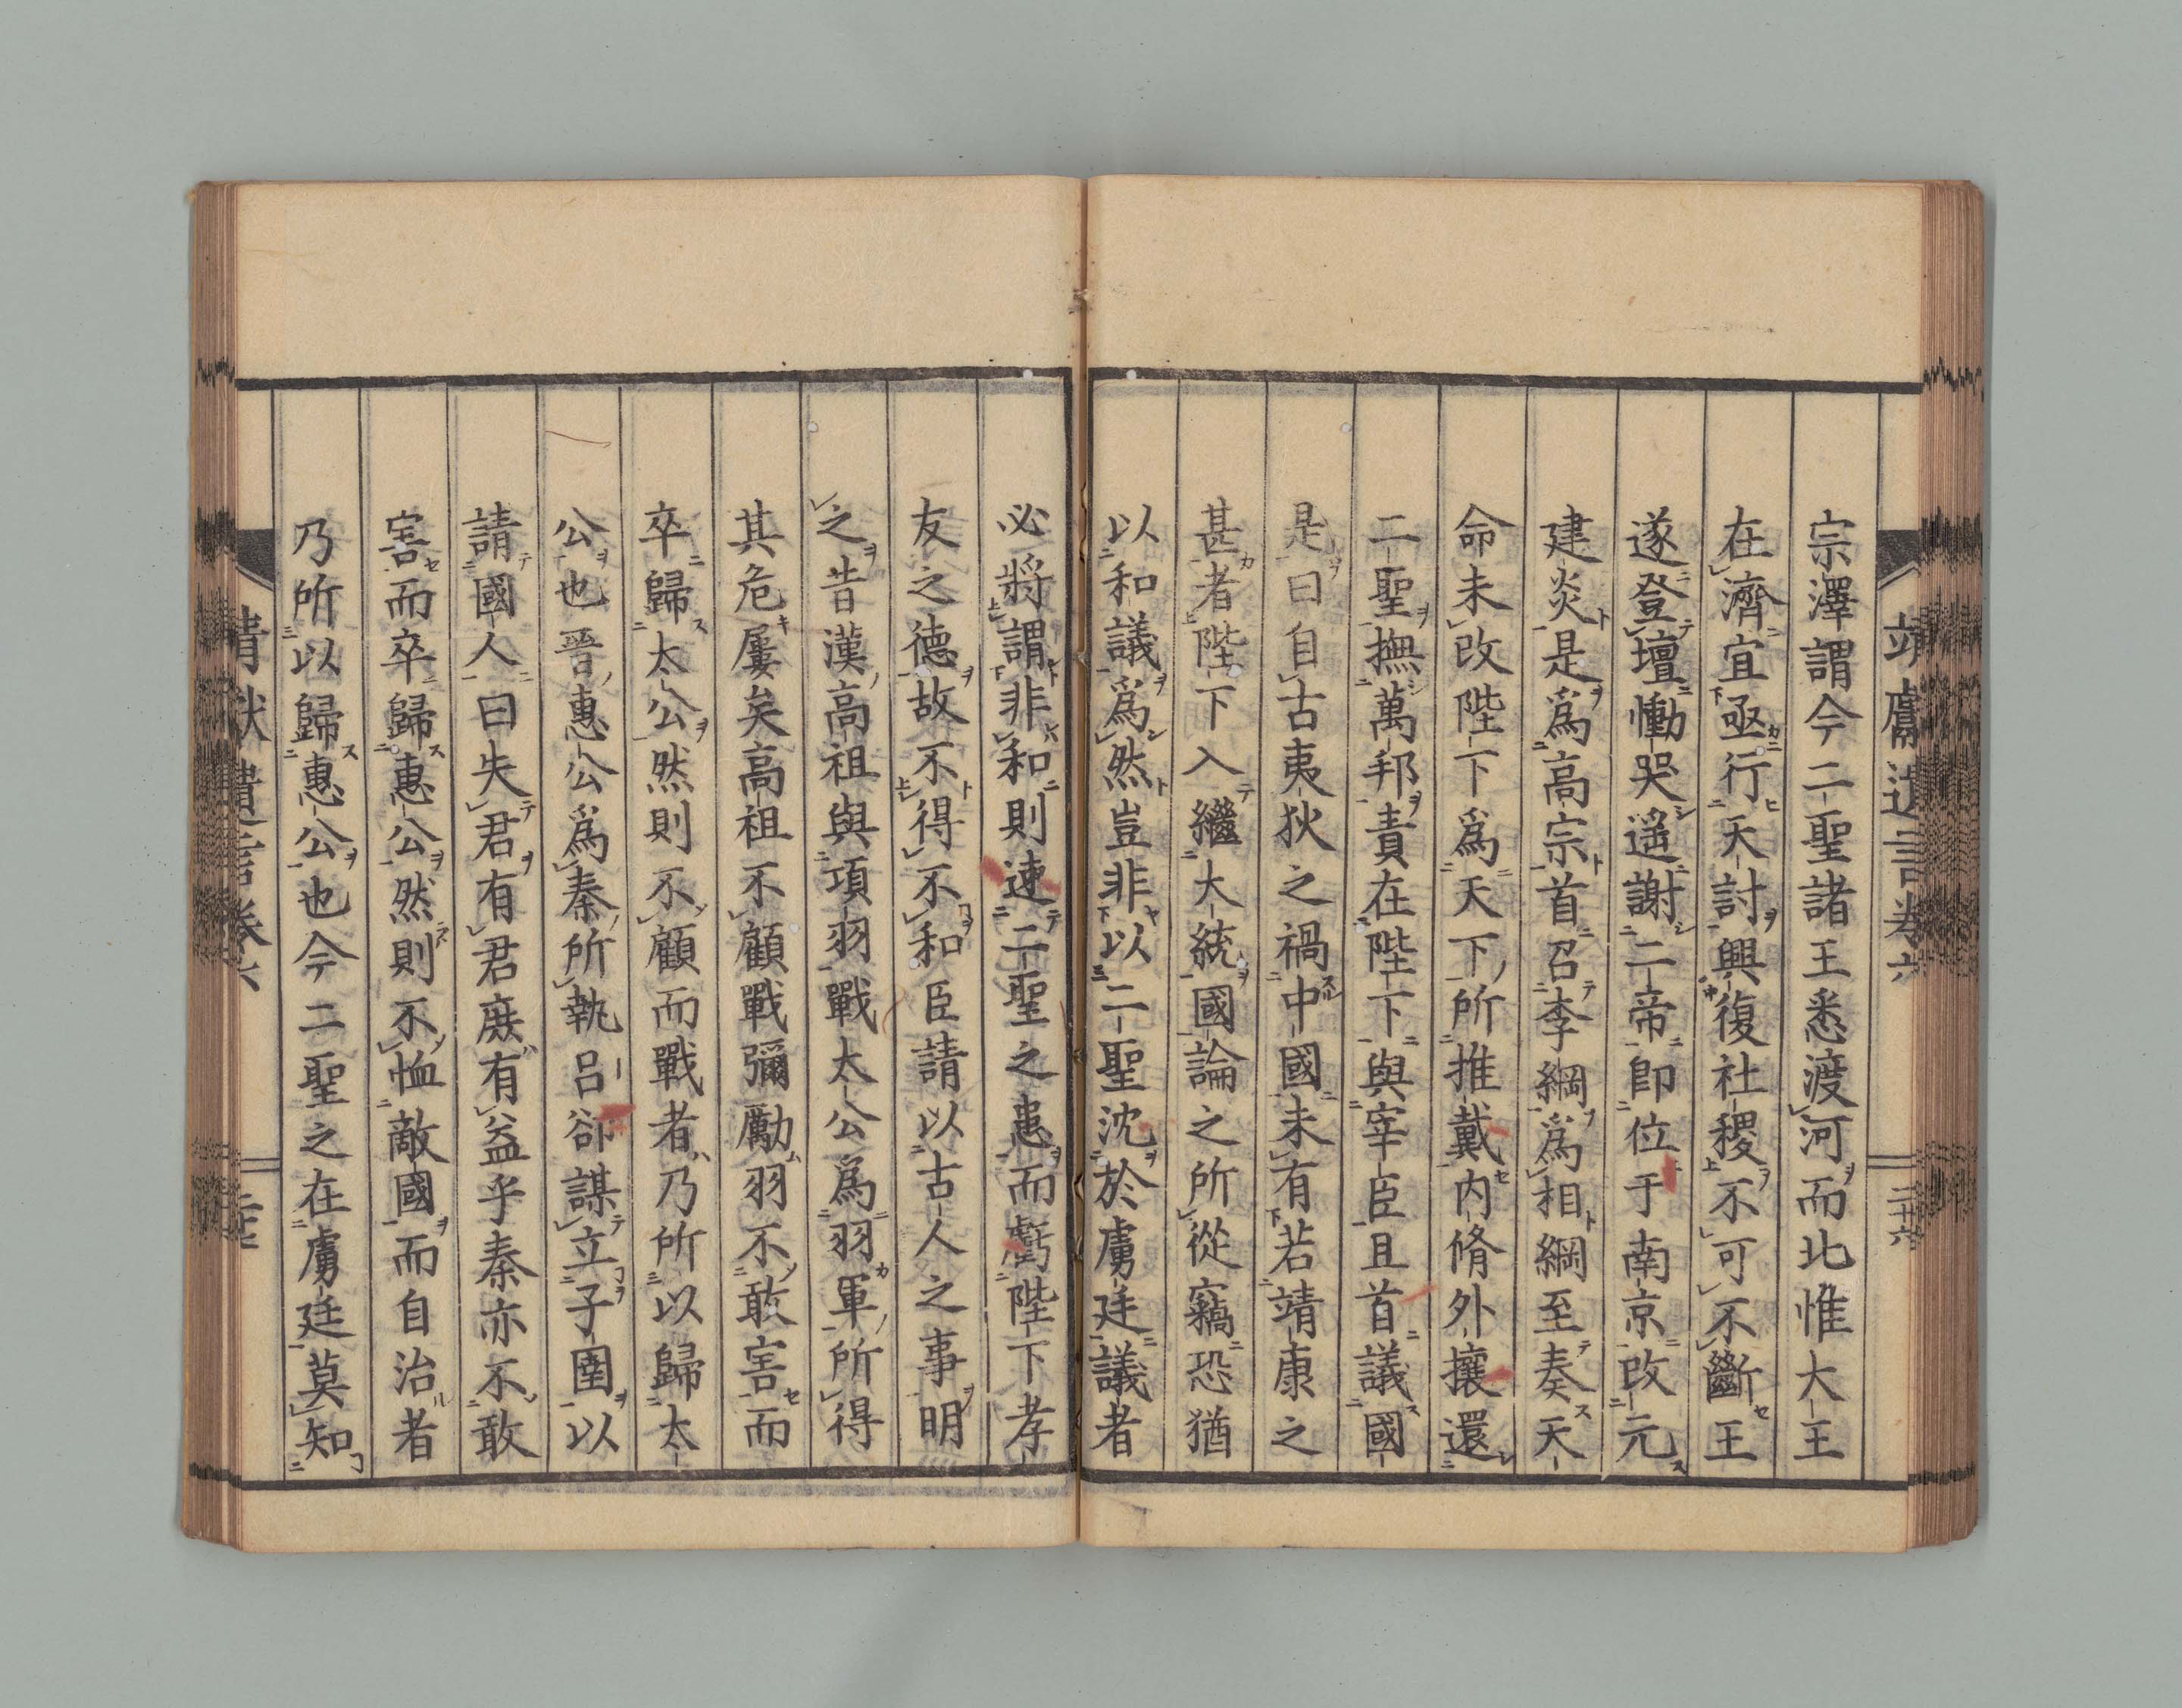 靖獻遺言卷六
二十六
宗澤謂今二聖諸王悉渡河而北惟大王
在濟宜亟行天討興復社稷不可不斷王
遂登壇慟哭遥謝二帝即位于南京改元
建炎是爲高宗首召李綱爲相綱至奏天
命未改陛下爲天下所推戴内脩外攘還
二聖撫萬邦責在陛下與宰臣且首議國
是曰自古夷狄之禍中國未有若靖康之
甚者陛下入繼大統國論之所從竊恐猶
以和議爲然豈非以二聖沈於虜廷議者
必將謂非和則速二聖之患而虧陛下孝
友之德故不得不和臣請以古人之事明
之昔漢高祖與項羽戰太公爲羽軍所得
其危屢矣高祖不顧戰彌勵羽不敢害而
卒歸太公然則不顧而戰者乃所以歸太
公也晋惠公爲秦所執呂郤謀立子圉以
請國人曰失君有君庶有益乎秦亦不敢
害而卒歸惠公然則不恤敵國而自治者
乃所以歸惠公也今二聖之在虜廷莫知
靖獻遺言卷六